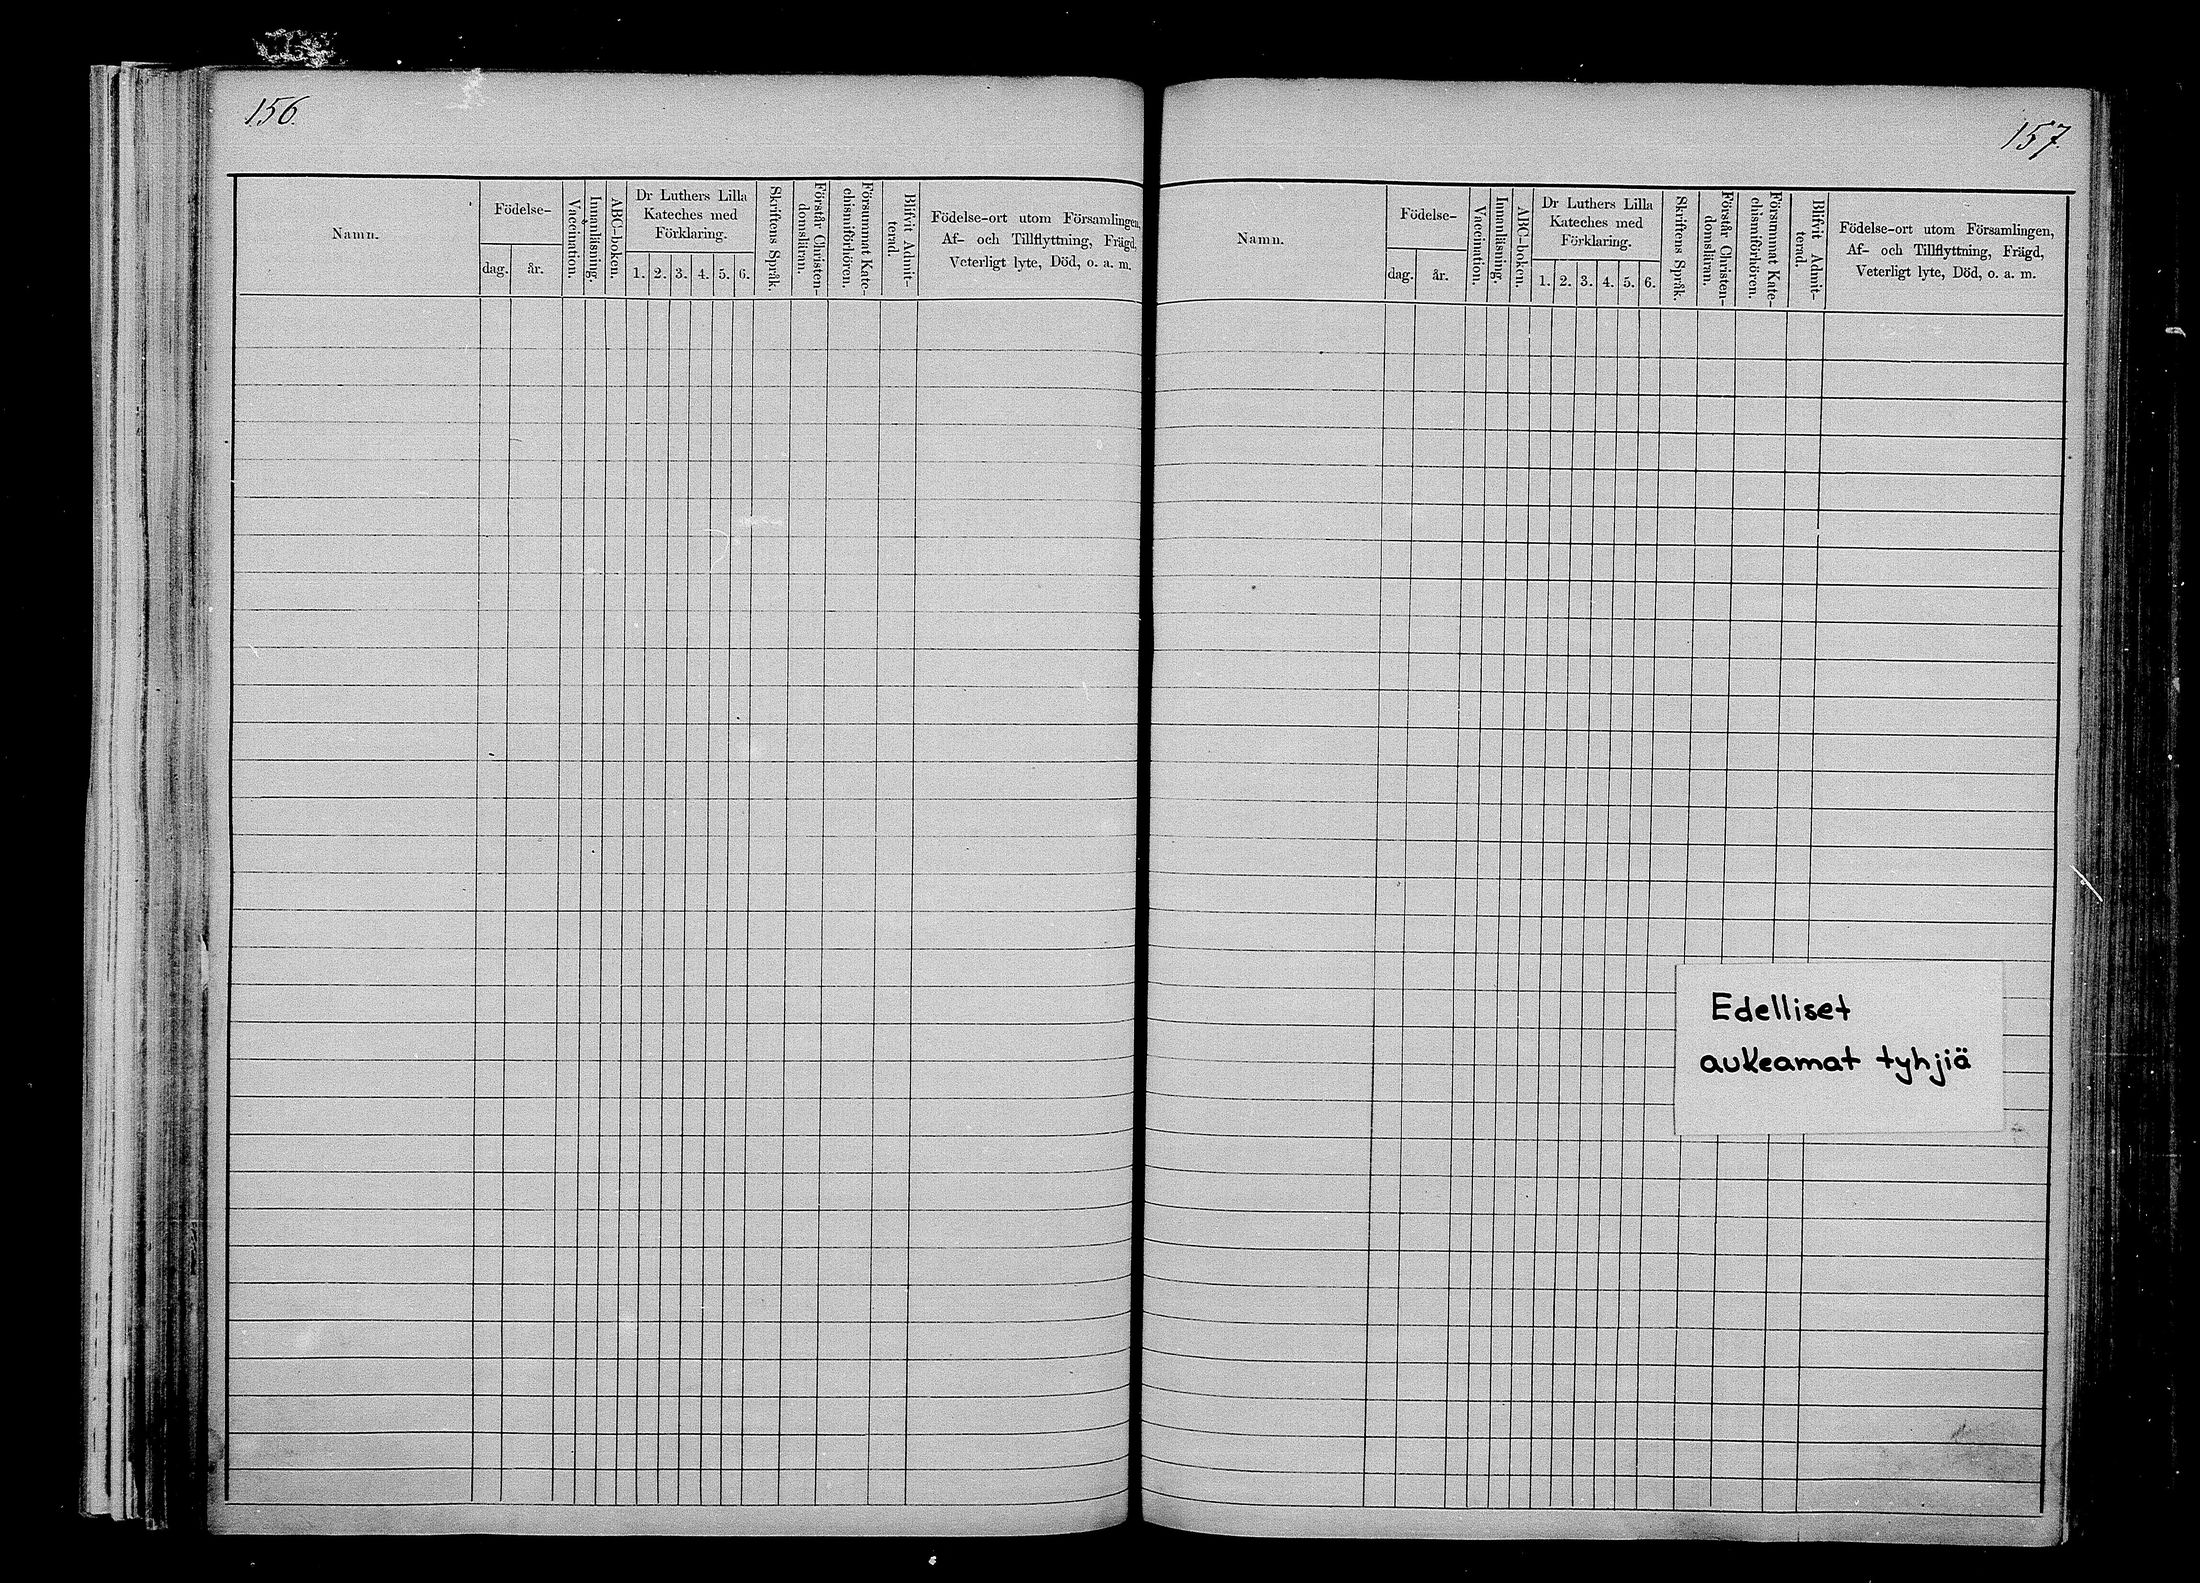 156.
Namn.
Födelse-
dag.
år.
Vaccination.
Innanläsning.
ABC-boken.
Dr Luthers Lilla
Kateches med
Förklaring.
1. 2. 3. 4. 5. 6.
Skriftens Språk.
Förstår Christen-
domsläran.
Försummat Kate-
chismiförhören.
Blifvit Admit-
terad.
Födelse-ort utom Församlingen,
Af- och Tillflyttning, Frägd,
Veterligt lyte, Död, o. a. m.
157.
Namn.
Födelse-
dag.
år.
Vaccination.
Innanläsning.
ABC-boken.
Dr Luthers Lilla
Kateches med
Förklaring.
1. 2. 3. 4. 5. 6.
Skriftens Språk.
Förstår Christen-
domsläran.
Försummat Kate-
chismiförhören.
Blifvit Admit-
terad.
Födelse-ort utom Församlingen,
Af- och Tillflyttning, Frägd,
Veterligt lyte, Död, o. a. m.
Edelliset
aukeamat tyhjiä